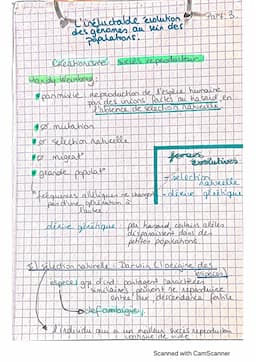 L'inéluctable évolution
des génomes au sein des
populations.
Part. 3.
Créationnisme succès reproducteur
Hardy-Weinberg
panmixie reproduction de l'espèce humaine
par des unions faites au hasard en
l'absence de sélection naturelle
Ø mutation
Ø sélection naturelle
Ø migrat°
grande populat°
forces
évolutives
- sélection
naturelle
- dérive génétique
fréquences alléliques ne changent
pas d'une génération à
l'autre
dérive génétique par hasard, certains allèles
disparaissent dans des
petites populations
sélection naturelle - Darwin (l'origine des
espèces)
espèces gr d'ind partagent caractères
similaires peuvent se reproduire
entre eux descendance fertile
def ambigüe
L'individu qui a un meilleur succès reproduction
Scanned with CamScanner